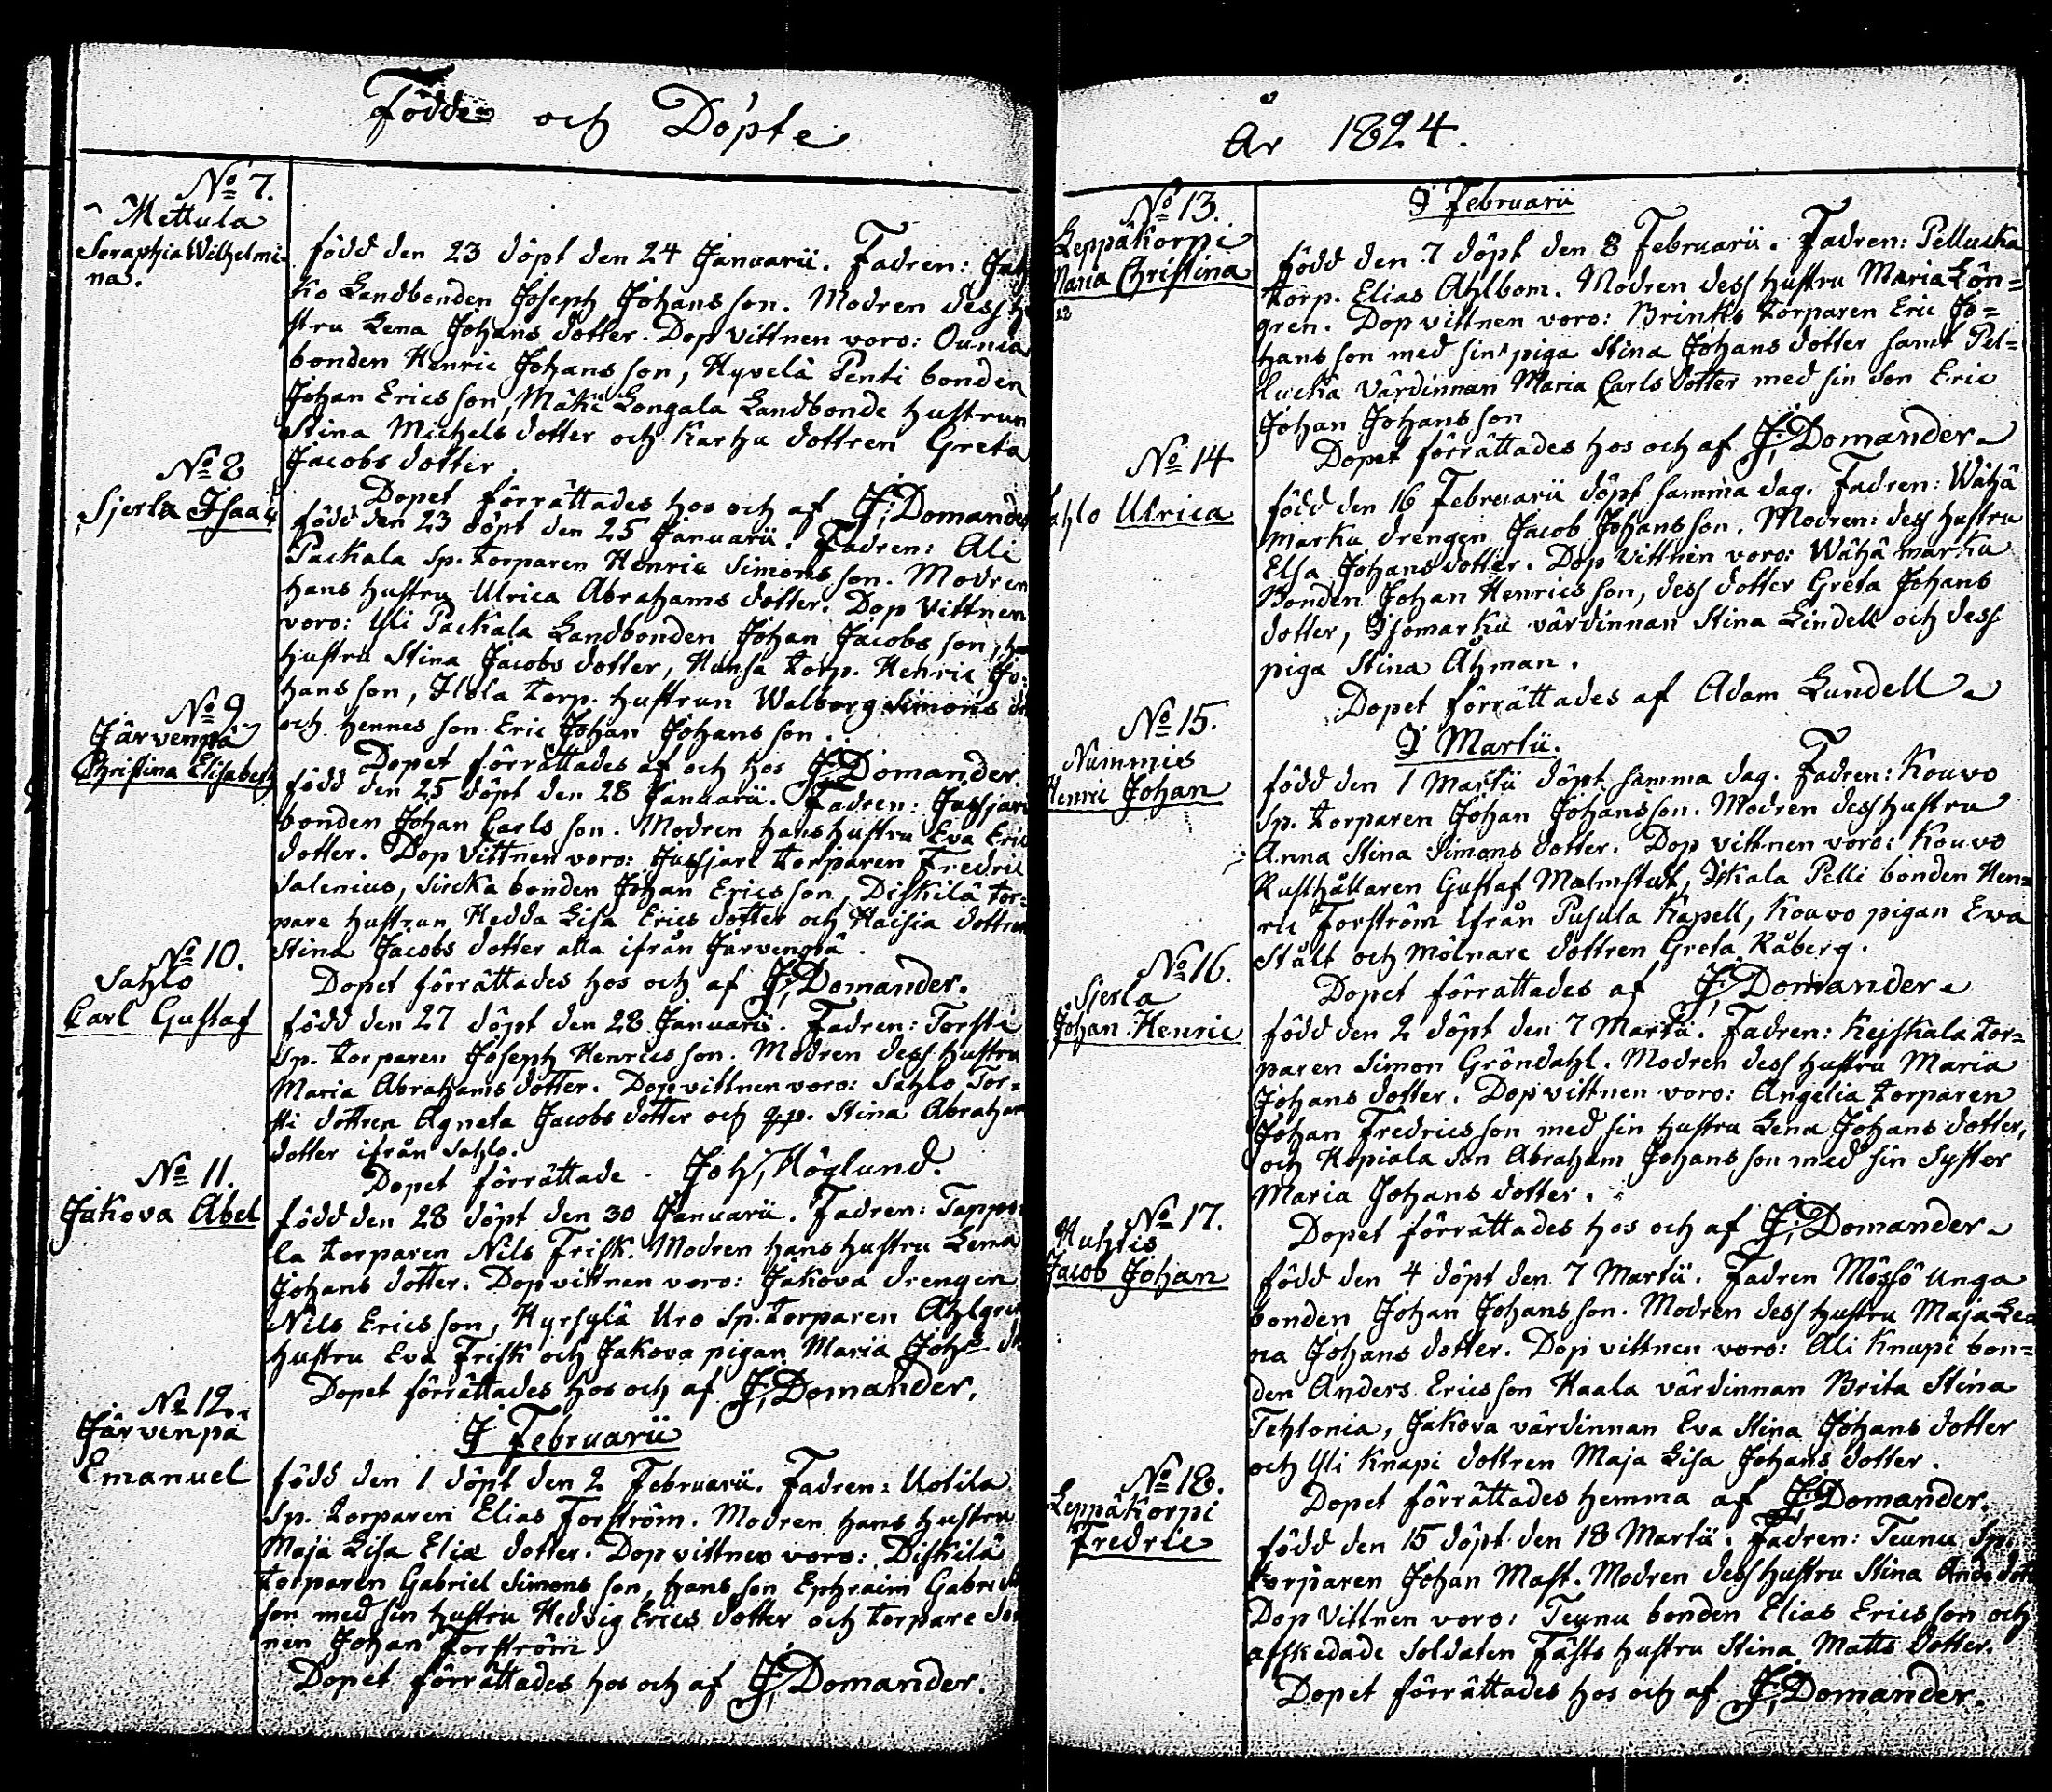 Födde och Döpte
No 7.
Mettula
Seraphia Wilhelmi-
na.
född den 23 döpt den 24 Januarii. Fadren:
ko Landbonden Joseph Johans son. Modren dess
stru Lena Johans dotter. Dop vittnen voro:
bonden Henric Johans son, Hyvelä Penti bonden
Johan Erics son, Mäki Longala Landbonde Hustrun
Stina Michels dotter och Karhu dottren Greta
Jacobs dotter.
Dopet förrättades hos och af J. Domander
No 8
Sjerla Isaac
född den 23 döpt den 25 Januarii. Fadren: Ali
Packala Sp. torparen Henric Simons son. Modren
Hans Hustru Ulrica Abrahams dotter. Dop Vittnen
voro: Yli Packala Landbonden Johan Jacobs son,
Hustru Stina Jacobs dotter, Hansa torp. Henric Jo-
hans son, Ilola torp. Hustrun Walborg Simons
och Hennes son Eric Johan Johans son.
Dopet förrättades af och hos J. Domander.
No 9
Järvenpä
Christina Elisabeth
född den 25 döpt den 28 Januarii. Fadren: Jussjari
bonden Johan Carls son. Modren Hans Hustru Eva Eric
dotter. Dop Vittnen voro: Jussjari torparen Fredric
Salenius, Sircka bonden Johan Erics son, Diskilä tor-
pare Hustrun Hedda Lisa Erics dotter och Haisia dottren
Stina Jacobs dotter alla ifrån Järvenpä.
Dopet förrättades hos och af J. Domander.
No 10.
Sahlo
Carl Gustaf
född den 27 döpt den 28 Januarii. Fadren: Torsti
Sp. torparen Joseph Henrics son. Modren dess Hustru
Maria Abrahams dotter. Dop vittnen voro: Sahlo Tor-
sti dottren Agneta Jacobs dotter och qvp. Stina Abraham
dotter ifrån Sahlo.
Dopet förrättade Joh, Höglund.
No 11.
Jakova Abel
född den 28 döpt den 30 Januarii. Fadren:
la torparen Nils Frisk. Modren Hans Hustru Lena
Johans dotter. Dop vittnen voro: Jakova drengen
Nils Erics son, Hyrsylä Uro Sp. torparen
Hustru Eva Frisk och Jakova pigan Maria Johs
Dopet förrättades hos och af J. Domander.
I Februarii
No 12.
Järvenpä
Emanuel
född den 1 döpt den 2 Februarii. Fadren: Uotila
Sp. torparen Elias Forström. Modren Hans Hustru
Maja Lisa Eliæ dotter. Dop vittnen voro: Diskilä
torparen Gabriel Simons son, Hans son Ephraim Gabriels
son med sin Hustru Hedvig Erics dotter och torpare so
nen Johan Forström
Dopet förrättades hos och af J. Domander.
År 1824.
I Februarii
No 13.
Leppäkorpi
Maria Christina
född den 7 döpt den 8 Februarii. Fadren: Pellucka
torp. Elias Ahlbom. Modren dess Hustru Maria Lön-
gren. Dop vittnen voro: Brinks torparen Eric Jo-
hans son med sin piga Stina Johans dotter samt Pel-
lucka värdinnan Maria Carls dotter med sin son Eric
Johan Johans son
Dopet förrättades hos och af J. Domander
No 14
Sahlo Ulrica
född den 16 Februarii döpt samma dag. Fadren: Wähä
marku drengen Jacob Johans son. Modren: dess Hustru
Elsa Johans dotter. Dop Vittnen voro: Wähä marku
Bonden Johan Henrics son, dess dotter Greta Johans
dotter, Isomarku värdinnan Stina Lindell och dess
piga Stina Åhman.
Dopet förrättades af Adam Lundell
I Martii.
No 15.
Nummis
Henric Johan
född den 1 Martii döpt samma dag. Fadren: Kouvo
Sp. torparen Johan Johans son. Modren dess Hustru
Anna Stina Simons dotter. Dop vittnen voro: Kouvo
Rusthållaren Gustaf Malmstut, Pelli bonden Hen-
ric Forström ifrån Pusula Kapell, Kouvo pigan Eva
Stålt och mölnare dottren Greta Råberg.
Dopet förrättades af J. Domander
No 16.
Sjerla
Johan Henric
född den 2 döpt den 7 Martii. Fadren: Kejskala tor-
paren Simon Gröndahl. Modren dess Hustru Maria
Johans dotter. Dop vittnen voro: Angelia torparen
Johan Fredrics son med sin Hustru Lena Johans dotter,
och Hopiala son Abraham Johans son med sin Syster
Maria Johans dotter.
Dopet förrättades hos och af J. Domander
No 17.
Huhtis
Jacob Johan
född den 4 döpt den 7 Martii. Fadren Mössö Unga
bonden Johan Johans son. Modren dess Hustru Maja Le-
na Johans dotter. Dop vittnen voro: Ali Knapi bon-
den Anders Erics son Haala värdinnan Brita Stina
Tehlonia, Jakova värdinnan Eva Stina Johans dotter
och Yli Knapi dottren Maja Lisa Johans dotter.
Dopet förrättades hemma af J. Domander.
No 18.
Leppäkorpi
Fredric
född den 15 döpt den 18 Martii. Fadren: Teunu Sp.
torparen Johan Mast. Modren dess Hustru Stina Ands dott
Dop Vittnen voro: Teunu bonden Elias Erics son och
afskedade Soldaten Fästs Hustru Stina Matts dotter.
Dopet förrättades hos och af J. Domander.